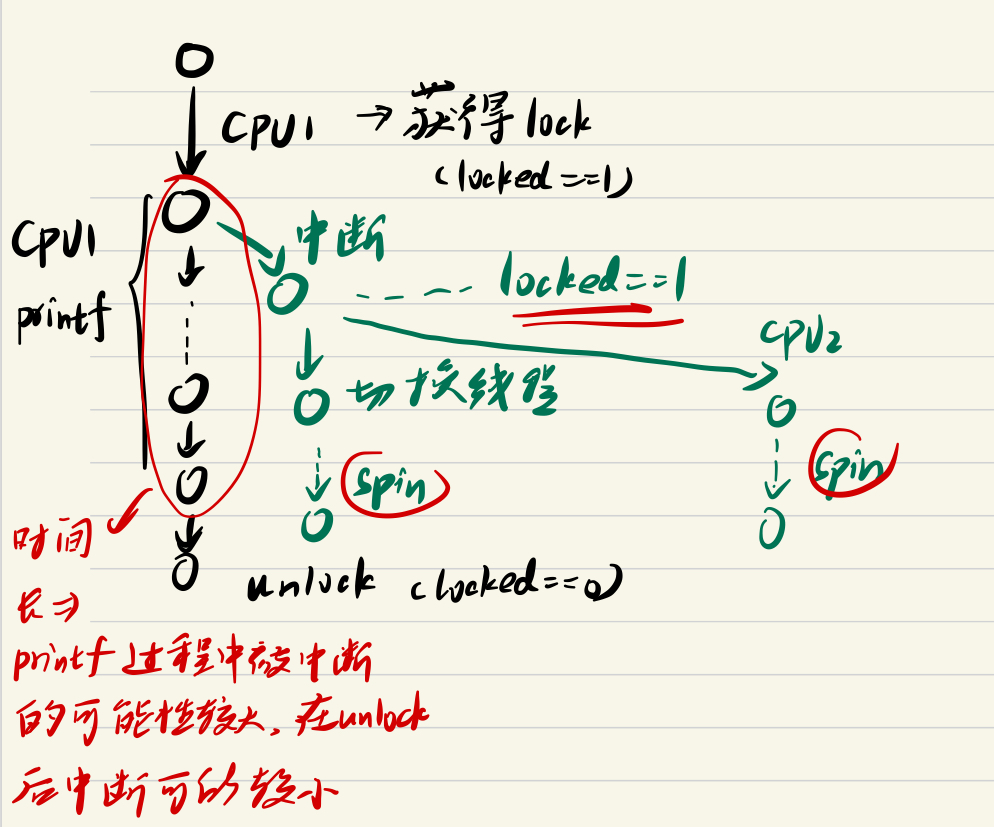 CPU1 → 获得 lock
(locked==1)
CPU1
printf
中断
locked==1
CPU2
切换线程
spin
spin
时间
长⇒
unlock (locked==0)
printf 过程中被中断
的可能性较大,在unlock
后中断可能较小